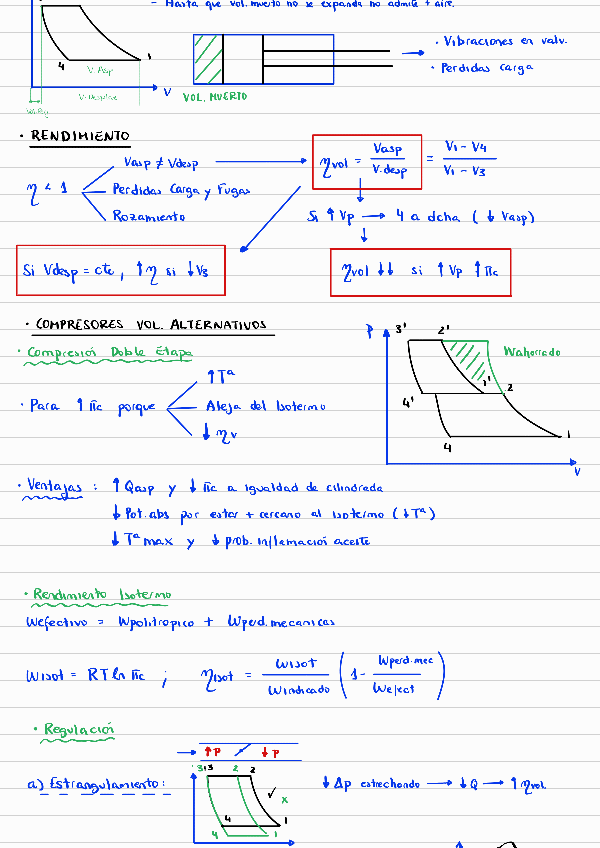 - Hasta que vol. muerto no se expanda no admite + aire.
4 1
V. Asp
V
VOL. MUERTO
· Vibraciones en valv.
· Perdidas carga
· RENDIMIENTO
η < 1
Vasp ≠ Vdesp
Perdidas Carga y Fugas
Rozamiento
ηvol = Vasp / V.desp = V1 - V4 / V1 - V3
Si ↑ Vp → 4 a dcha ( ↓ Vasp)
Si Vdesp = cte, ↑η si ↓V3
ηvol ↓↓ si ↑Vp ↑πc
· COMPRESORES VOL. ALTERNATIVOS
· Compresión Doble Etapa
· Para ↑πc porque
↑Tª
Aleja del Isotermo
↓ ηv
P 3' 2'
Wahorrado
4' 1' 2
4 1
V
· Ventajas : ↑Qasp y ↓πc a igualdad de cilindrada
↓ Pot.abs por estar + cercano al isotermo (↓Tª)
↓ Tª max y ↓ prob. inflamación aceite
· Rendimiento Isotermo
Wefectivo = Wpolitropico + Wperd.mecanicas
Wisot = RT ln πc ; ηisot = Wisot / Windicado ( 1 - Wperd.mec / Weject )
· Regulación
↑P ↓P
a) Estrangulamiento:
3' 3 2 2
✓ x
4 1
4 1
↓Δp estrechando → ↓Q → ↑ηvol.